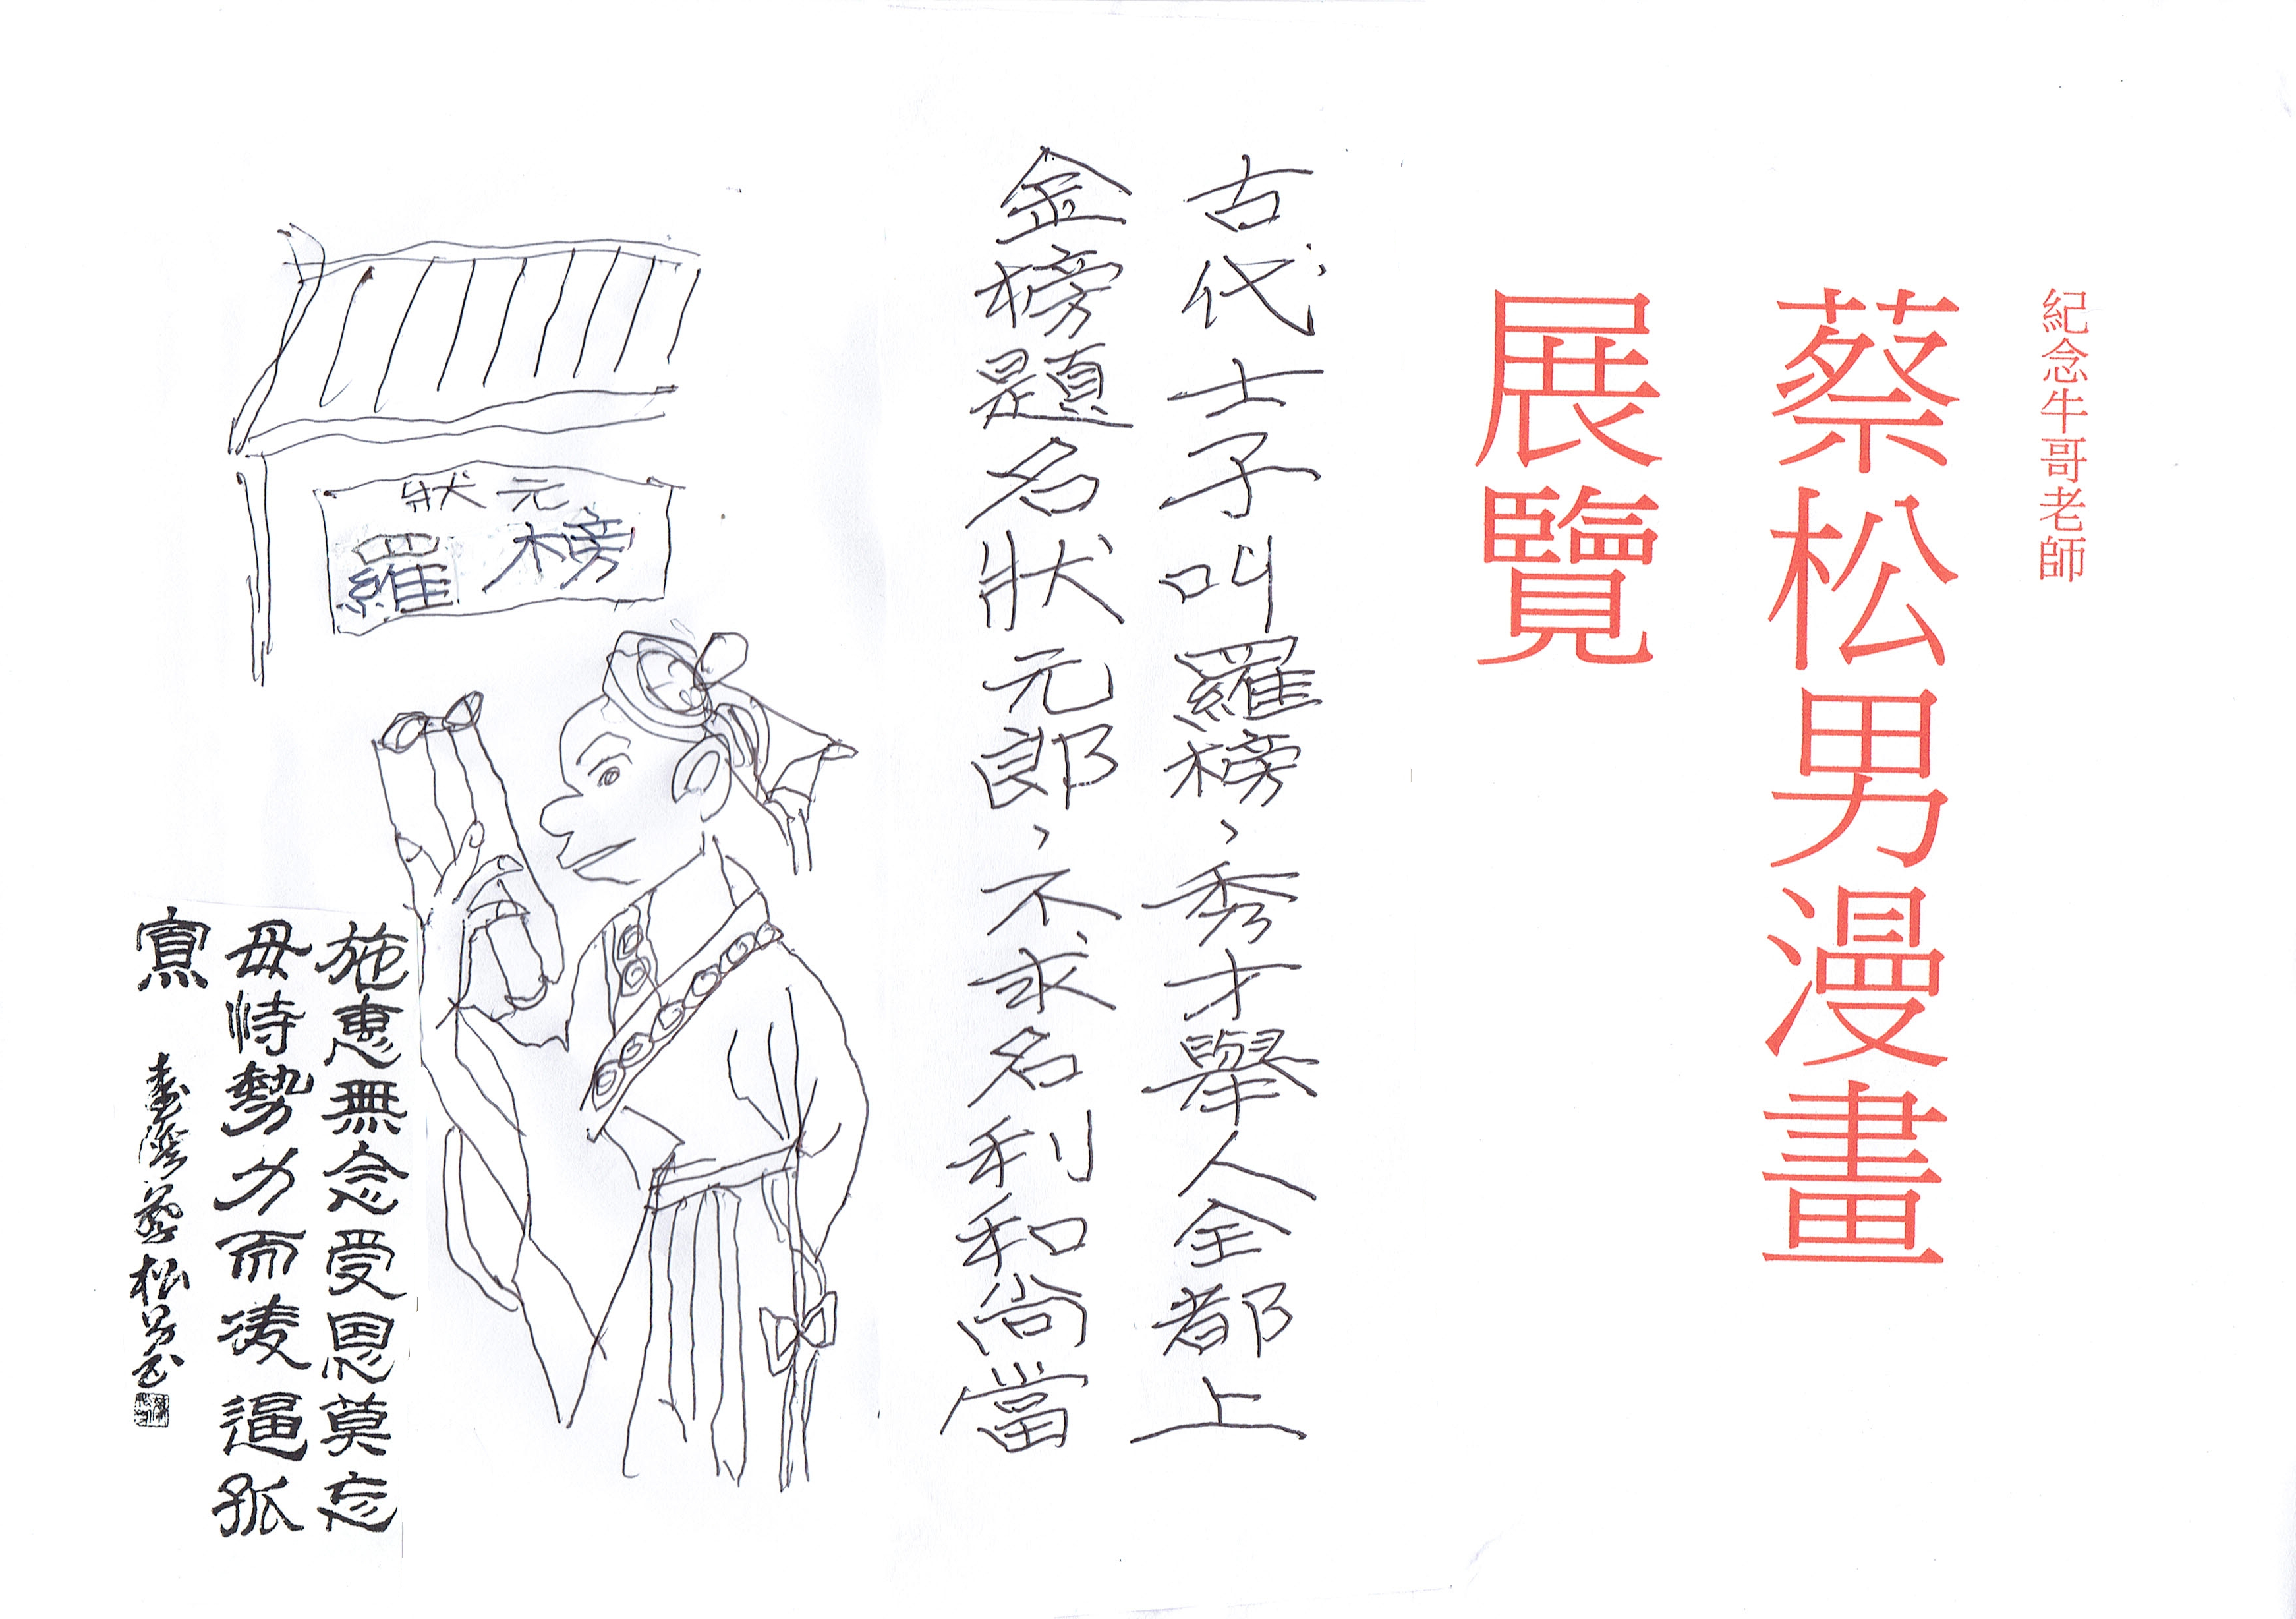 紀念牛哥老師
蔡松男漫畫
展覽
古代士子叫羅榜、秀才舉人全都上
金榜題名狀元郎、不求名利和尚當
狀元
羅榜
施惠無念受恩莫忘
毋恃勢力而凌逼孤
寡
臺灣蔡松男書